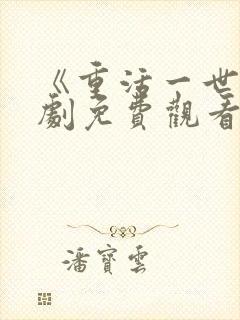 《重活一世
劇免費觀看
潘寶雲